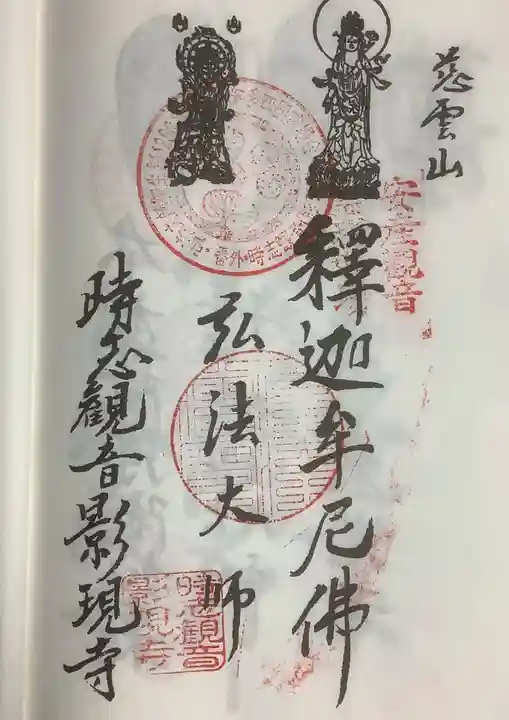 慈雲山
安産観音
釋迦牟尼佛
弘法大師
番外・時志観音
時志觀音影現寺
時志観音
影現寺